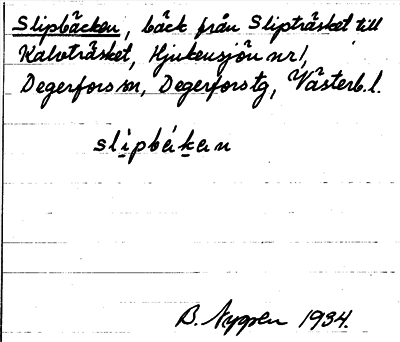 Slipbäcken, bäck från Slipträsket till
Kalvträsket, Hjukensjön nr 1,
Degerfors sn, Degerfors tg, Västerb. l.
slipbákan
B. Nygren 1934.